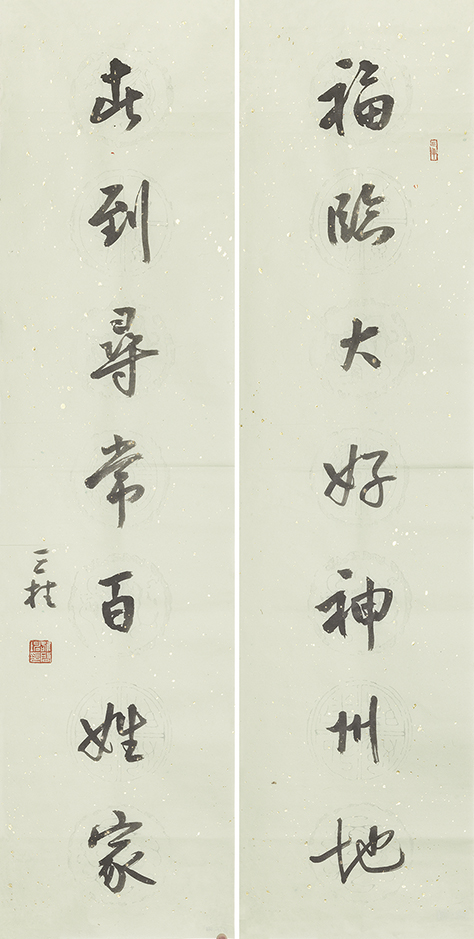 福臨大好神州地
到尋常百姓家
桂